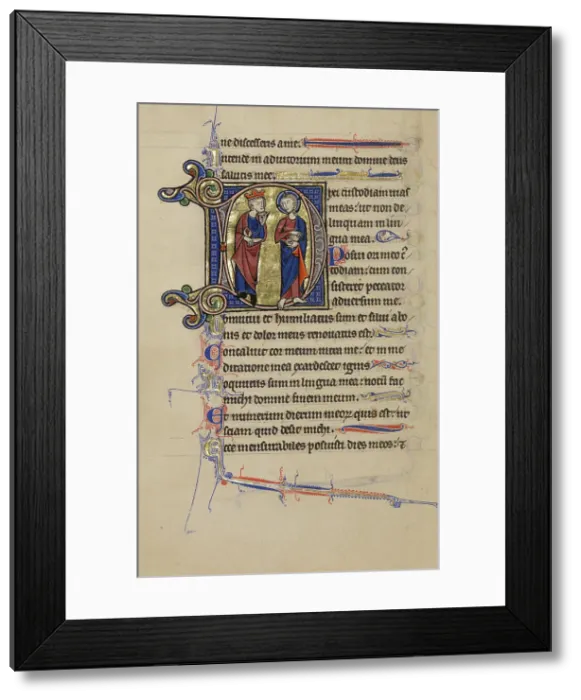 ne discesseris a me.
Intende in adiutorium meum domine deus
salutis mee.
Dixi custodiam uias
meas: ut non de
linquam in lin
gua mea.
Posui ori meo c
todiam: cum con
sisteret peccator
aduersum me.
Obmutui et humiliatus sum et silui a bo
nis et dolor meus renouatus est.
Concaluit cor meum intra me: et in me
ditatione mea exardescet ignis.
Loquutus sum in lingua mea: notum fac
michi domine finem meum.
Et numerum dierum meorum quis est ut
sciam quid desit michi.
Ecce mensurabiles posuisti dies meos: et